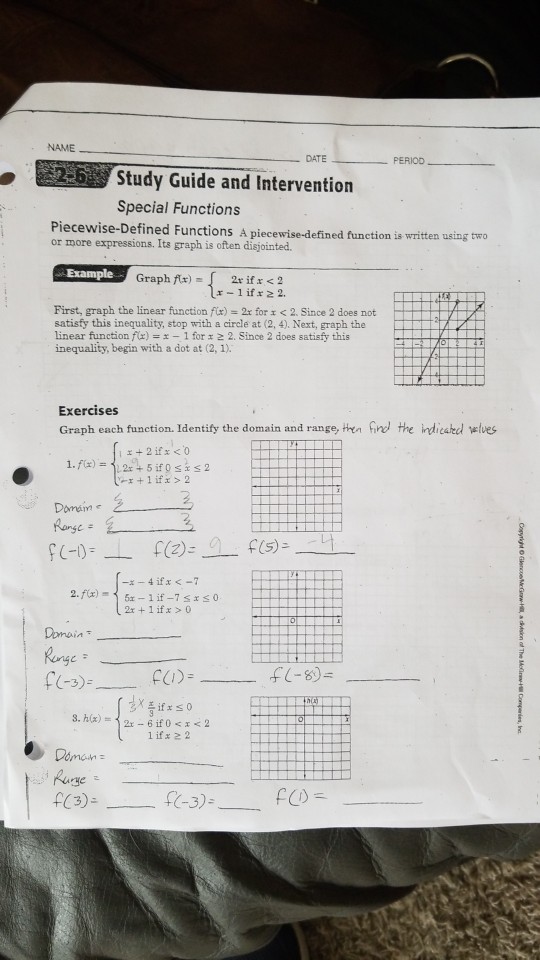 NAME DATE PERIOD
2-6 Study Guide and Intervention
Special Functions
Piecewise-Defined Functions A piecewise-defined function is written using two
or more expressions. Its graph is often disjointed.
Example Graph f(x) = { 2x if x < 2
x − 1 if x ≥ 2.
First, graph the linear function f(x) = 2x for x < 2. Since 2 does not
satisfy this inequality, stop with a circle at (2, 4). Next, graph the
linear function f(x) = x − 1 for x ≥ 2. Since 2 does satisfy this
inequality, begin with a dot at (2, 1).
Exercises
Graph each function. Identify the domain and range, then find the indicated values
x + 2 if x < 0
1. f(x) = { 2x + 5 if 0 ≤ x ≤ 2
-x + 1 if x > 2
Domain =
Range =
f(-1) = 1 f(2) = 9 f(5) = -4
−x − 4 if x < −7
2. f(x) = { 5x − 1 if −7 ≤ x ≤ 0
2x + 1 if x > 0
Domain =
Range =
f(-3) = f(1) = f(-8) =
1/3 x x/3 if x ≤ 0
3. h(x) = { 2x − 6 if 0 < x < 2
1 if x ≥ 2
Domain =
Range =
f(3) = f(-3) = f(1) =
Copyright © Glencoe/McGraw-Hill, a division of The McGraw-Hill Companies, Inc.